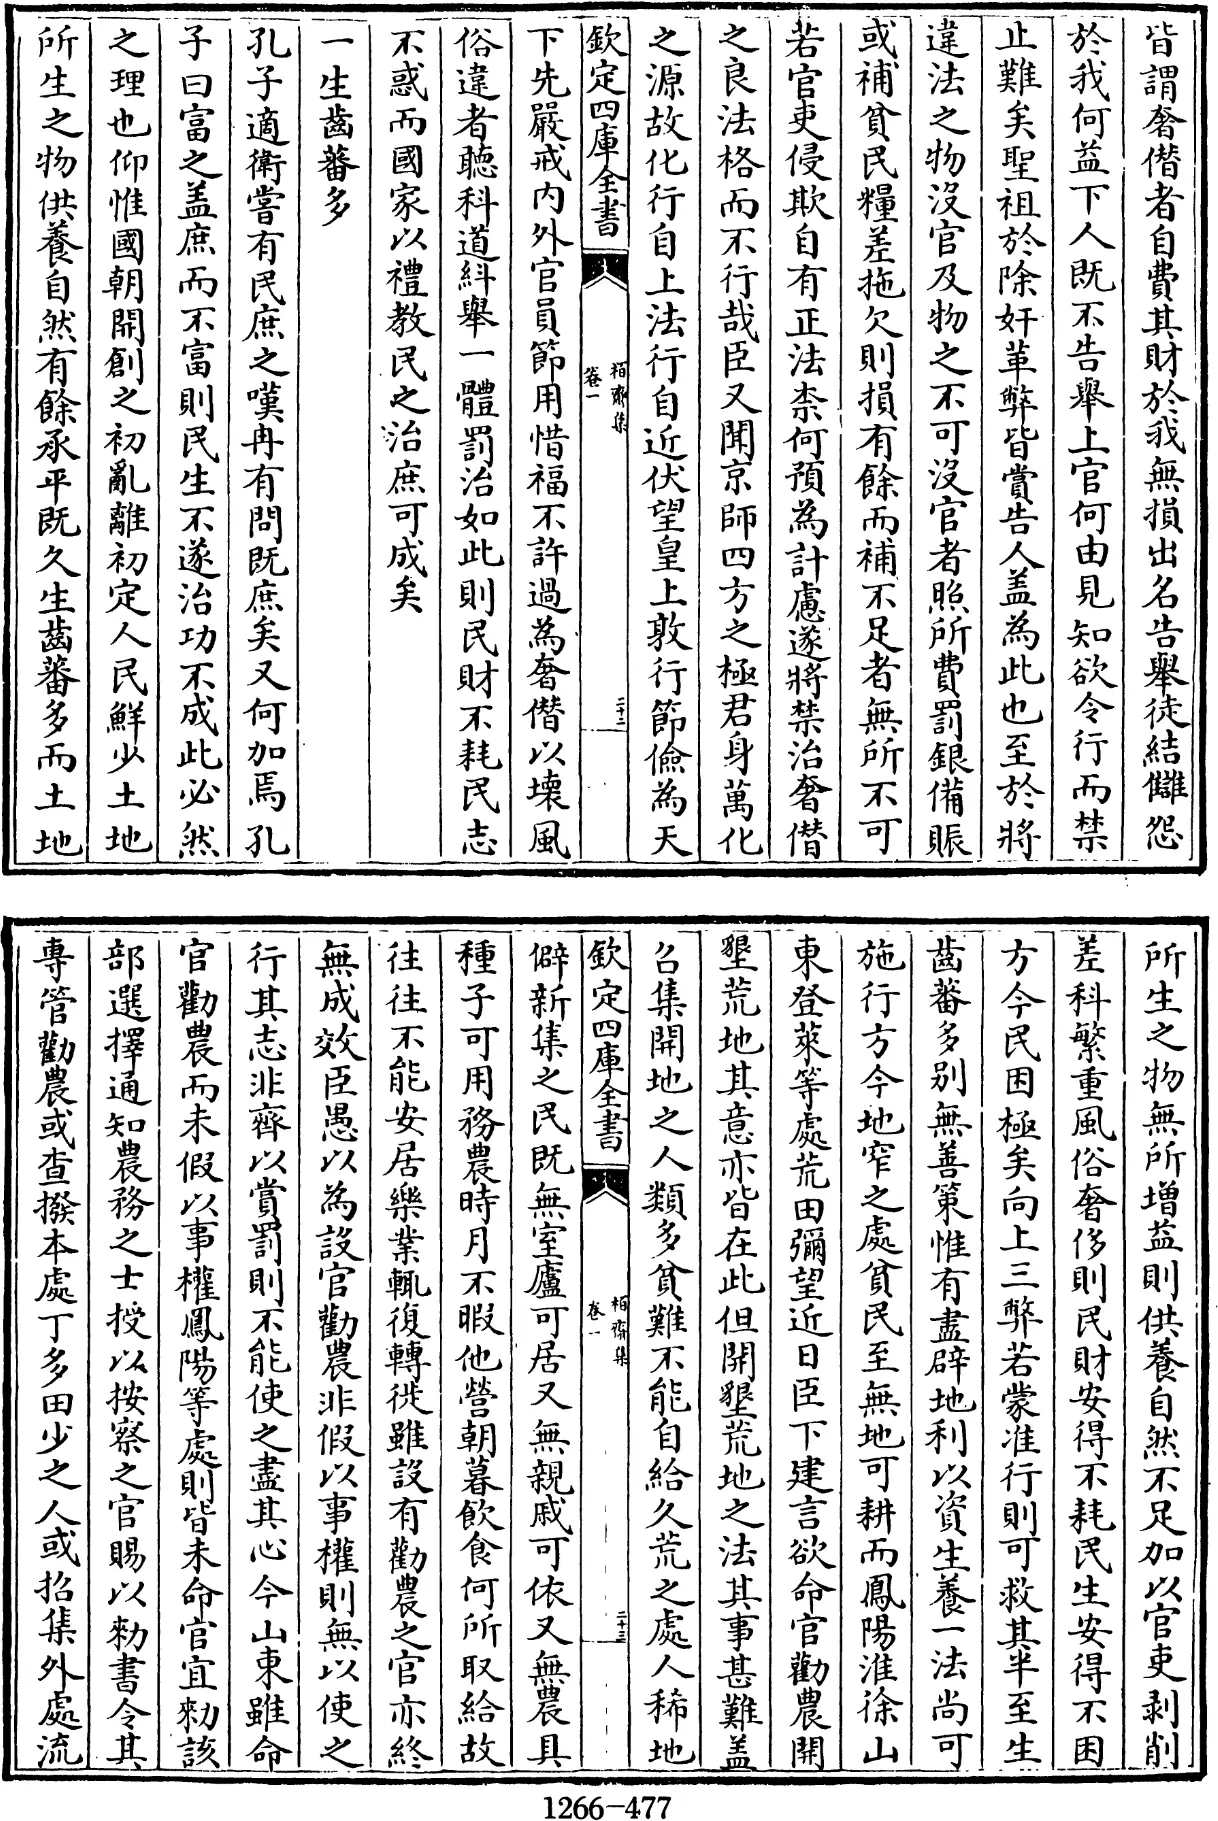 皆謂奢僭者自費其財於我無損出名告舉徒結讎怨
於我何益下人既不告舉上官何由見知欲令行而禁
止難矣聖祖於除奸革弊皆賞告人盖為此也至於將
違法之物沒官及物之不可沒官者照所費罰銀備賑
或補貧民糧差拖欠則損有餘而補不足者無所不可
若官吏侵欺自有正法柰何預為計慮遂將禁治奢僭
之良法格而不行哉臣又聞京師四方之極君身萬化
之源故化行自上法行自近伏望皇上敦行節儉為天
欽定四庫全書
栢齋集
卷一
二十二
下先嚴戒内外官員節用惜福不許過為奢僭以壞風
俗違者聽科道糾舉一體罰治如此則民財不耗民志
不惑而國家以禮教民之治庶可成矣
一生齒蕃多
孔子適衛嘗有民庶之嘆冉有問既庶矣又何加焉孔
子曰富之盖庶而不富則民生不遂治功不成此必然
之理也仰惟國朝開創之初亂離初定人民鮮少土地
所生之物供養自然有餘承平既久生齒蕃多而土地
所生之物無所增益則供養自然不足加以官吏剥削
差科繁重風俗奢侈則民財安得不耗民生安得不困
方今民困極矣向上三弊若蒙准行則可救其半至生
齒蕃多别無善策惟有盡辟地利以資生養一法尚可
施行方今地窄之處貧民至無地可耕而鳳陽淮徐山
東登萊等處荒田彌望近日臣下建言欲命官勸農開
墾荒地其意亦皆在此但開墾荒地之法其事甚難盖
召集開地之人類多貧難不能自給久荒之處人稀地
欽定四庫全書
栢齋集
卷一
二十三
僻新集之民既無室廬可居又無親戚可依又無農具
種子可用務農時月不暇他營朝暮飲食何所取給故
往往不能安居樂業輒復轉徙雖設有勸農之官亦終
無成效臣愚以為設官勸農非假以事權則無以使之
行其志非齊以賞罰則不能使之盡其心今山東雖命
官勸農而未假以事權鳳陽等處則皆未命官宜勑該
部選擇通知農務之士授以按察之官賜以勑書令其
專管勸農或查撥本處丁多田少之人或招集外處流
1266-477